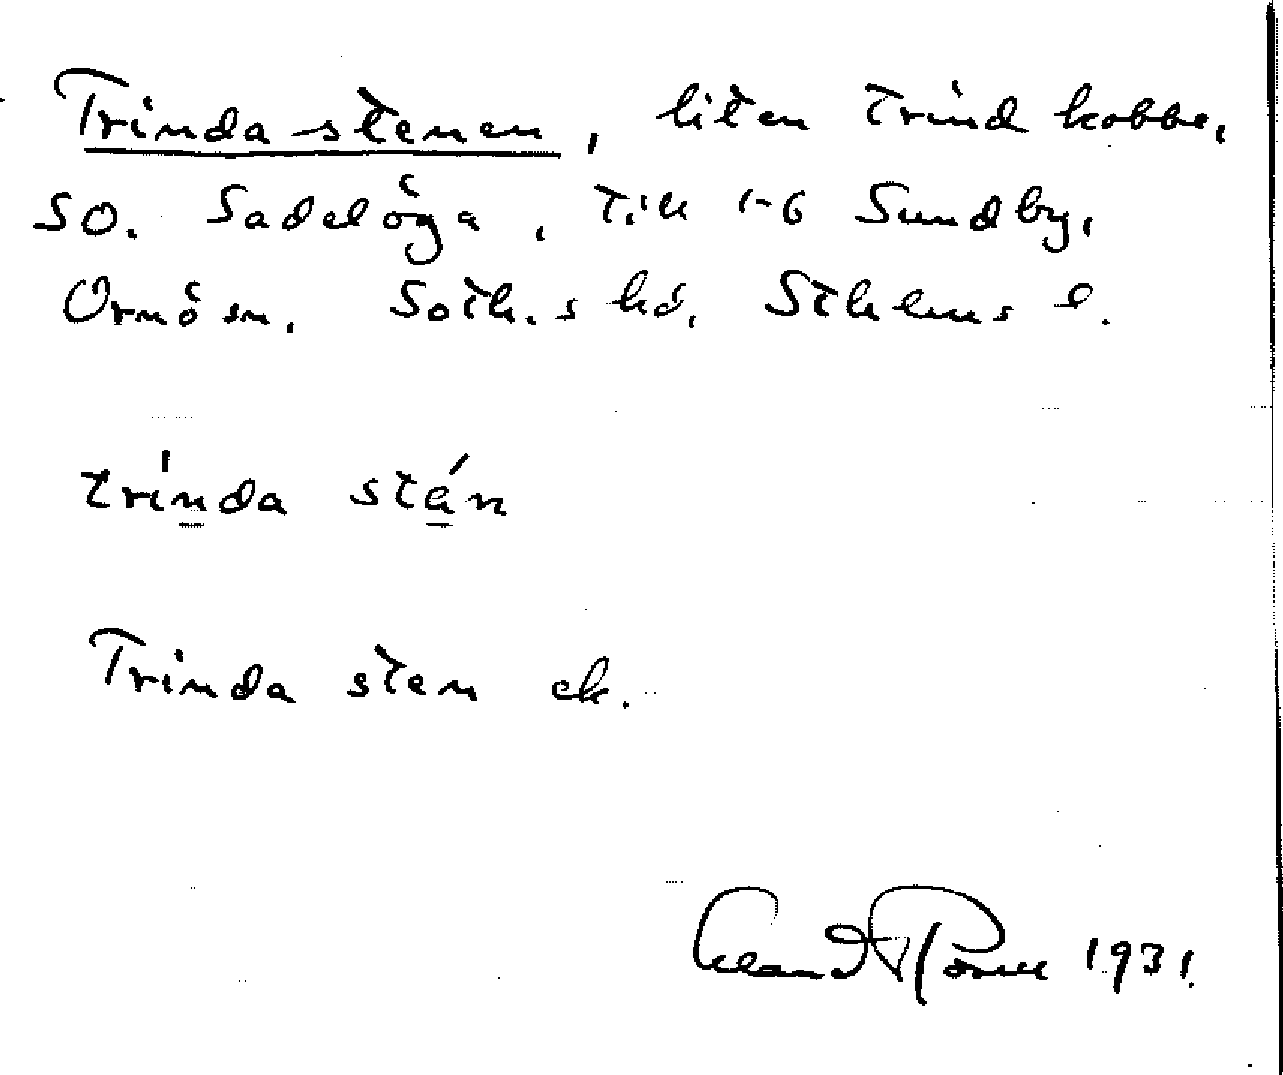 Trinda stenen, liten trind kobbe,
SO. Sadelöga, till 1-6 Sundby,
Ornö sn. Soth.s hd, Sthlms l.
trinda stán
Trinda sten ek.
1931.